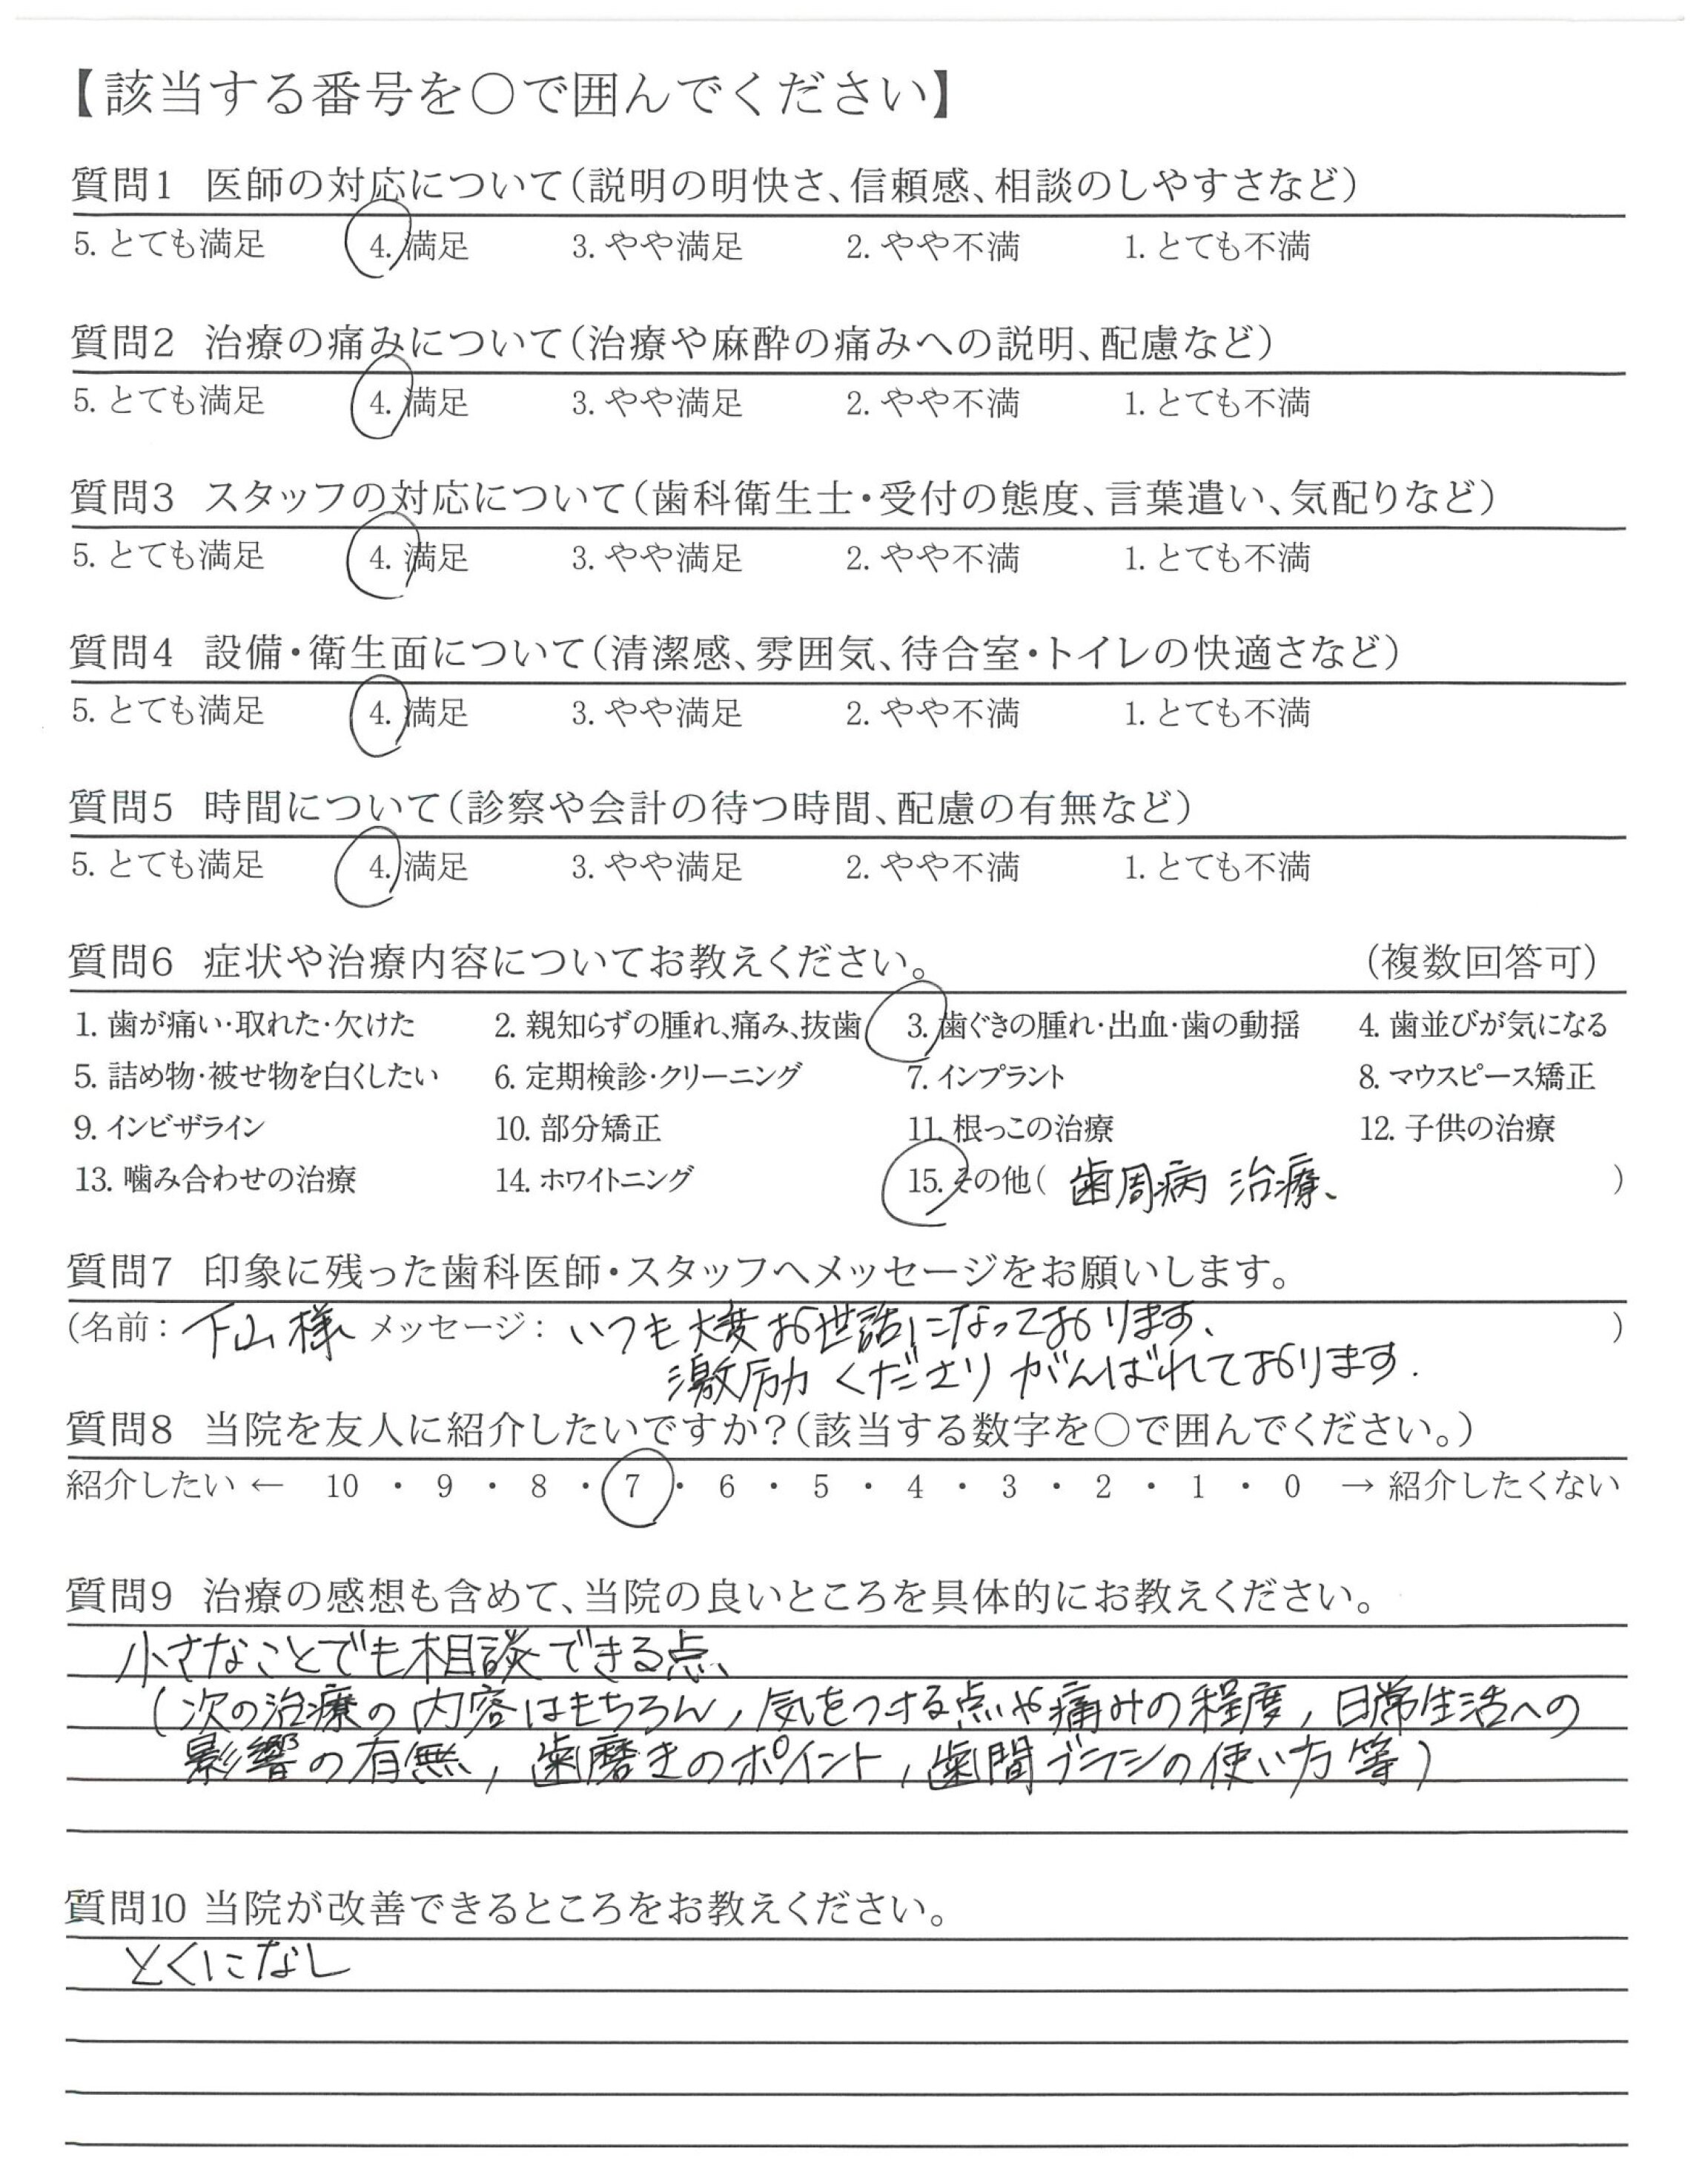 【該当する番号を○で囲んでください】
質問1 医師の対応について(説明の明快さ、信頼感、相談のしやすさなど)
5. とても満足 4. 満足 3. やや満足 2. やや不満 1. とても不満
質問2 治療の痛みについて(治療や麻酔の痛みへの説明、配慮など)
5. とても満足 4. 満足 3. やや満足 2. やや不満 1. とても不満
質問3 スタッフの対応について(歯科衛生士・受付の態度、言葉遣い、気配りなど)
5. とても満足 4. 満足 3. やや満足 2. やや不満 1. とても不満
質問4 設備・衛生面について(清潔感、雰囲気、待合室・トイレの快適さなど)
5. とても満足 4. 満足 3. やや満足 2. やや不満 1. とても不満
質問5 時間について(診察や会計の待つ時間、配慮の有無など)
5. とても満足 4. 満足 3. やや満足 2. やや不満 1. とても不満
質問6 症状や治療内容についてお教えください。 (複数回答可)
1. 歯が痛い・取れた・欠けた 2. 親知らずの腫れ、痛み、抜歯 3. 歯ぐきの腫れ・出血・歯の動揺 4. 歯並びが気になる
5. 詰め物・被せ物を白くしたい 6. 定期検診・クリーニング 7. インプラント 8. マウスピース矯正
9. インビザライン 10. 部分矯正 11. 根っこの治療 12. 子供の治療
13. 噛み合わせの治療 14. ホワイトニング 15. その他( 歯周病 治療、 )
質問7 印象に残った歯科医師・スタッフへメッセージをお願いします。
(名前: 下山様 メッセージ: いつも大変お世話になっております、 )
激励くださり がんばれております.
質問8 当院を友人に紹介したいですか?(該当する数字を○で囲んでください。)
紹介したい ← 10 ・ 9 ・ 8 ・ 7 ・ 6 ・ 5 ・ 4 ・ 3 ・ 2 ・ 1 ・ 0 → 紹介したくない
質問9 治療の感想も含めて、当院の良いところを具体的にお教えください。
小さなことでも相談できる点、
(次の治療の内容はもちろん, 気をつける点や痛みの程度, 日常生活への
影響の有無, 歯磨きのポイント, 歯間ブラシの使い方 等)
質問10 当院が改善できるところをお教えください。
とくになし